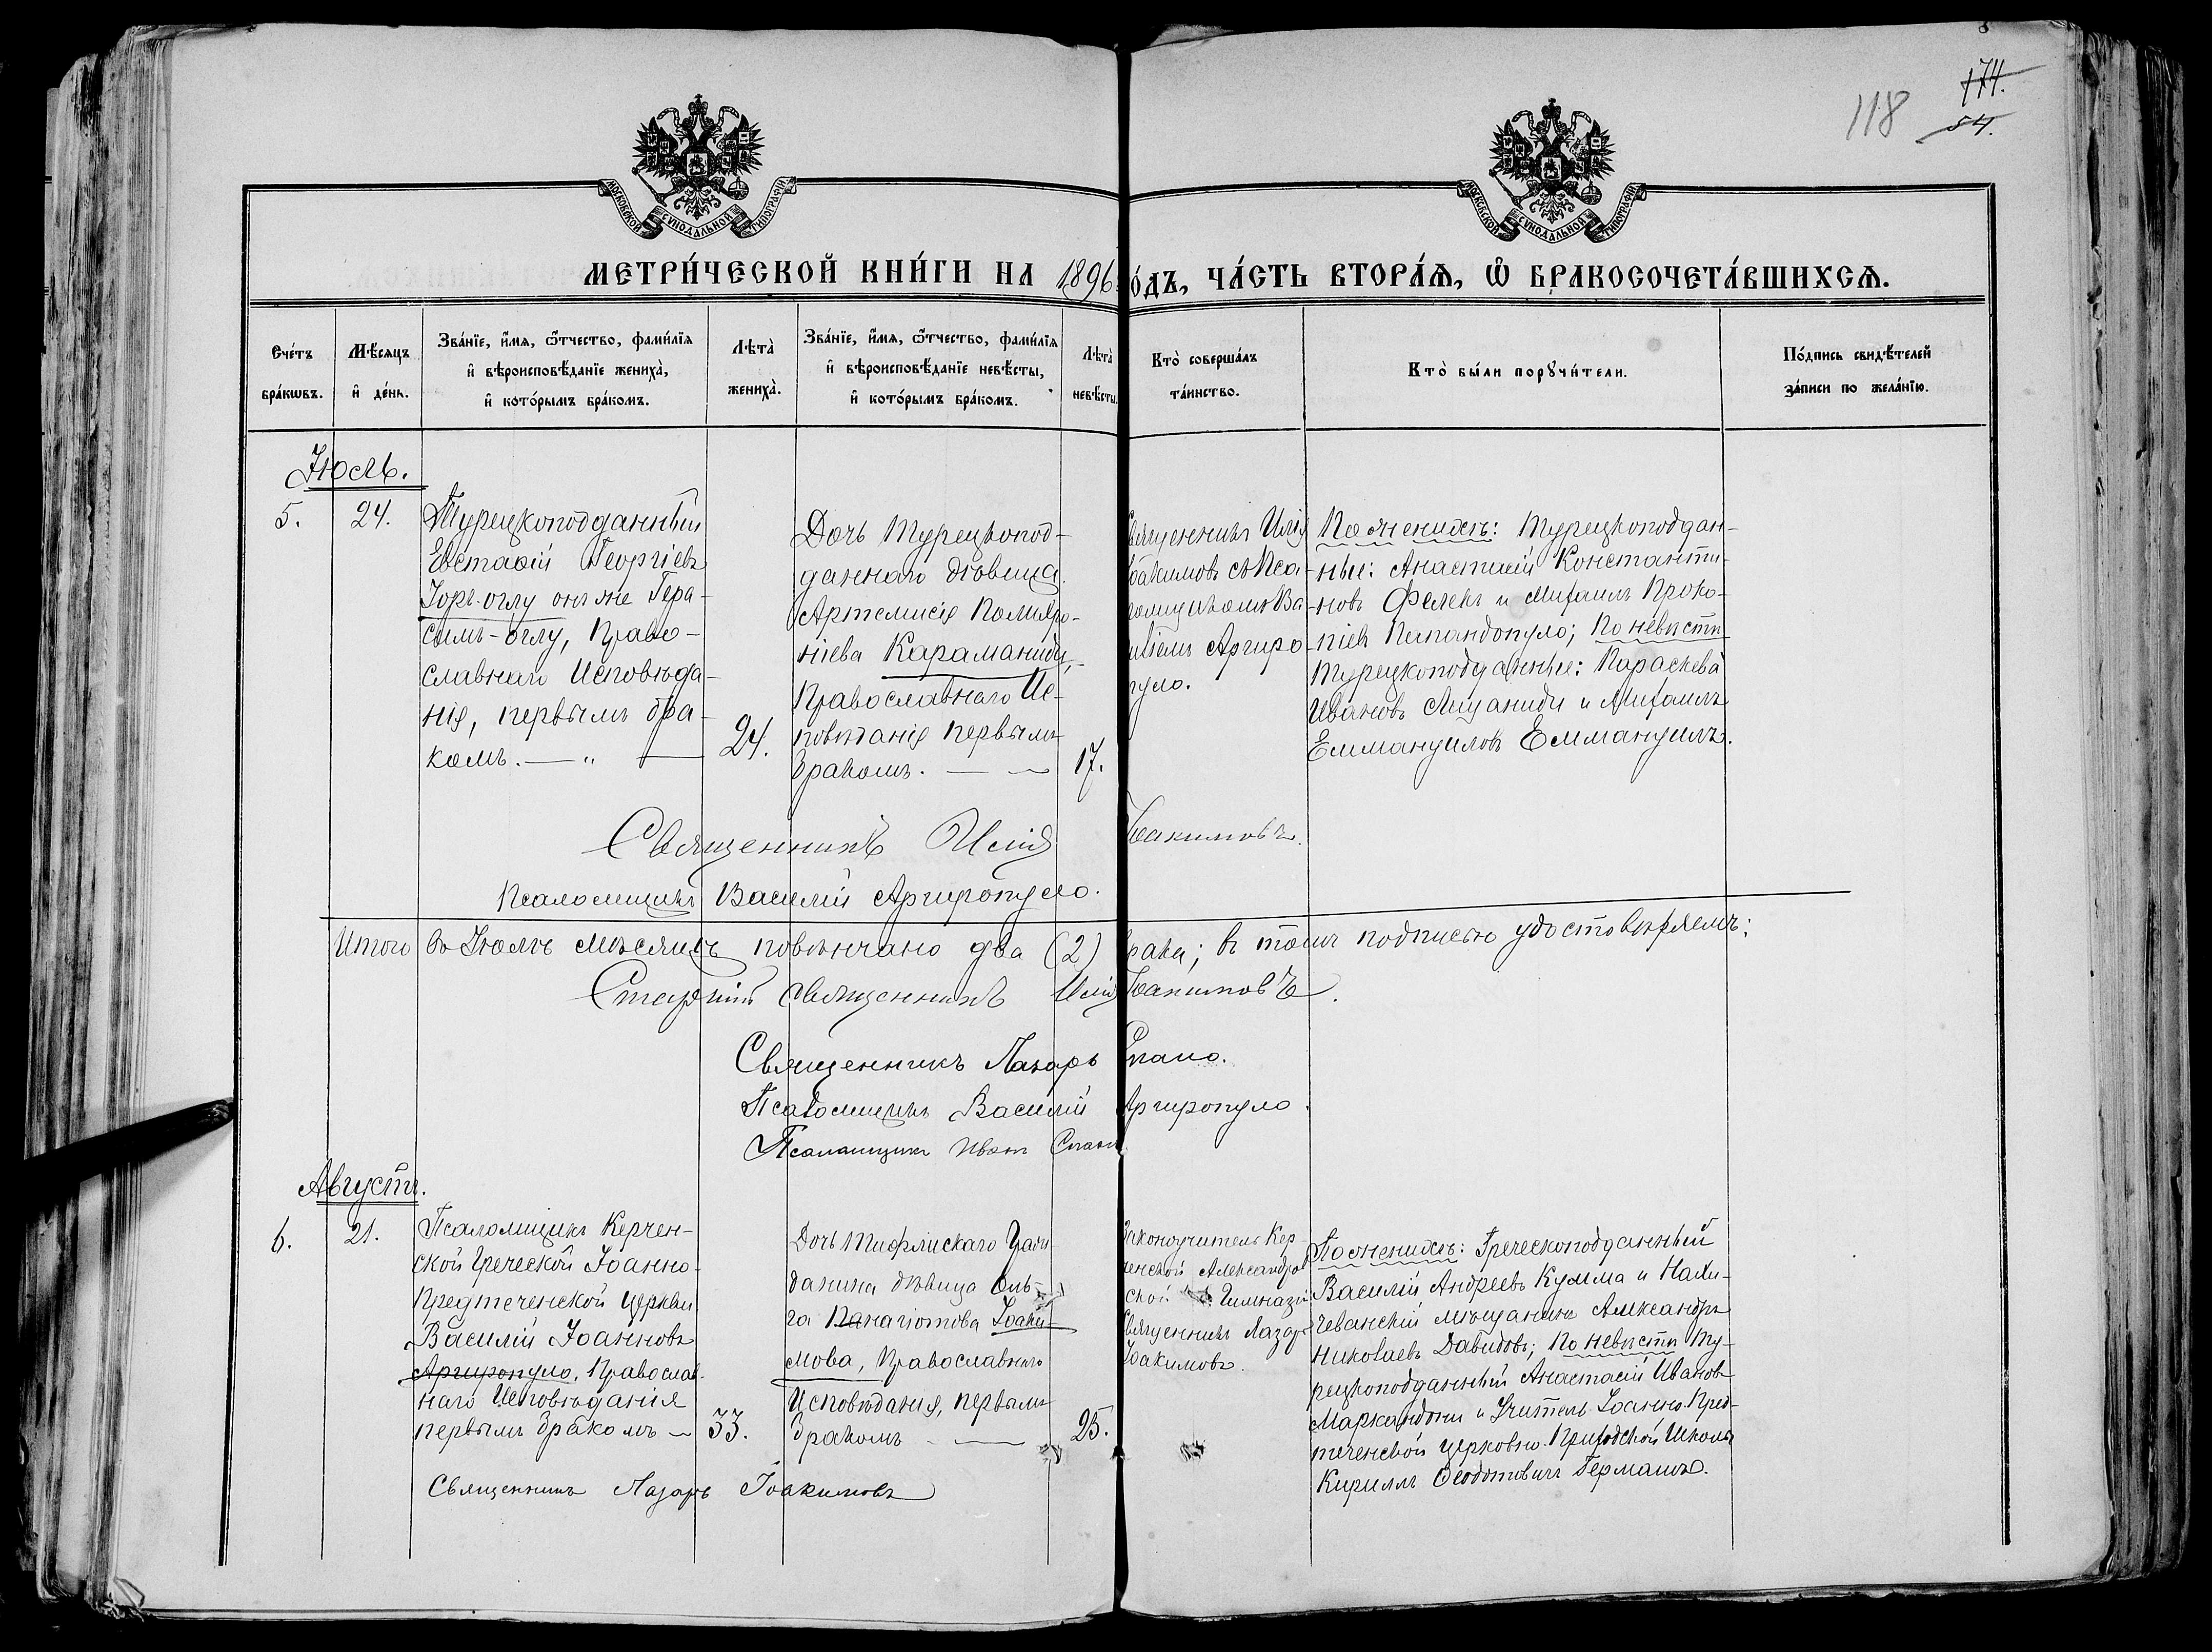 118
174.
54.
МОСКОВСКОЙ СѴНОДАЛЬНОЙ ТИПОГРАФІИ
МОСКОВСКОЙ СѴНОДАЛЬНОЙ ТИПОГРАФІИ
МЕТРИ́ЧЕСКОЙ КНИ́ГИ НА 1896 ГО́ДЪ, ЧА́СТЬ ВТОРА́Ѧ, Ѽ БРАКОСОЧЕТА́ВШИХСѦ.
Сче́тъ
бра́кѡвъ.
Мѣ́сѧцъ
и҆ де́нь.
Зва́нїе, и҆́мѧ, ѻ҆́тчество, фами́лїѧ
и҆ вѣроисповѣ́данїе жениха̀,
и҆ кото́рымъ бра́комъ.
Лѣта̀
жениха̀.
Зва́нїе, и҆́мѧ, ѻ҆́тчество, фами́лїѧ
и҆ вѣроисповѣ́данїе невѣ́сты,
и҆ кото́рымъ бра́комъ.
Лѣта̀
невѣ́сты.
Кто̀ соверша́лъ
та́инство.
Кто̀ бы́ли порꙋчи́тели.
По́дпись свидѣ́телей
за́писи по жела́нїю.
Іюль.
5.
24.
Турецкоподданный
Евстафій Георгіевъ
Горъ-оглу онъ же Гера-
симъ-оглу, Право-
славнаго Исповѣда-
нія, первымъ бра-
комъ. — „ —
24.
Дочь Турецкопод-
даннаго дѣвица
Артемисія Полихро-
ніева Караманиди,
Православнаго Ис-
повѣданія первымъ
бракомъ. — —
17.
Священникъ Илія
Іоакимовъ съ Пса-
ломщикомъ Ва-
силіемъ Аргиро-
пуло.
По женихѣ: Турецкоподдан-
ные: Анастасій Константи-
новъ Фелекъ и Михаилъ Проко-
піевъ Папандопуло; По невѣстѣ
Турецкоподданные: Параскева
Ивановъ Лицаниди и Михаилъ
Еммануиловъ Еммануилъ.
Священникъ Илія Іоакимовъ.
Псаломщикъ Василій Аргиропуло.
Итого въ Іюлѣ мѣсяцѣ повѣнчано два (2) брака; въ томъ подписью удостовѣряемъ:
Старшій священникъ Илія Іоакимовъ.
Священникъ Лазарь Спано.
Псаломщикъ Василій Аргиропуло.
Псаломщикъ Иванъ
Августъ.
6.
21.
Псаломщикъ Керчен-
ской Греческой Іоанно-
Предтеченской церкви
Василій Іоанновъ
Аргиропуло, Православ-
наго Исповѣданія
первымъ бракомъ —
33.
Дочь Тифлискаго Граж-
данина дѣвица Оль-
га Панагіотова Іоаки-
мова, Православнаго
Исповѣданія, первымъ
бракомъ — —
25.
Законоучитель Кер-
ченской Александров
ской Гимназіи
Священникъ Лазарь
Іоакимовъ.
По женихѣ: Греческоподданный
Василій Андреевъ Кулима и Нахи-
чеванскій мѣщанинъ Александръ
Николаевъ Давидовъ; По невѣстѣ Ту-
рецкоподданный Анастасій Ивановъ
Маркандони и Учитель Іоанно-Пред-
теченской церковно-Приходской Школы
Кириллъ Ѳеодотовичъ Германъ.
Священникъ Лазарь Іоакимовъ